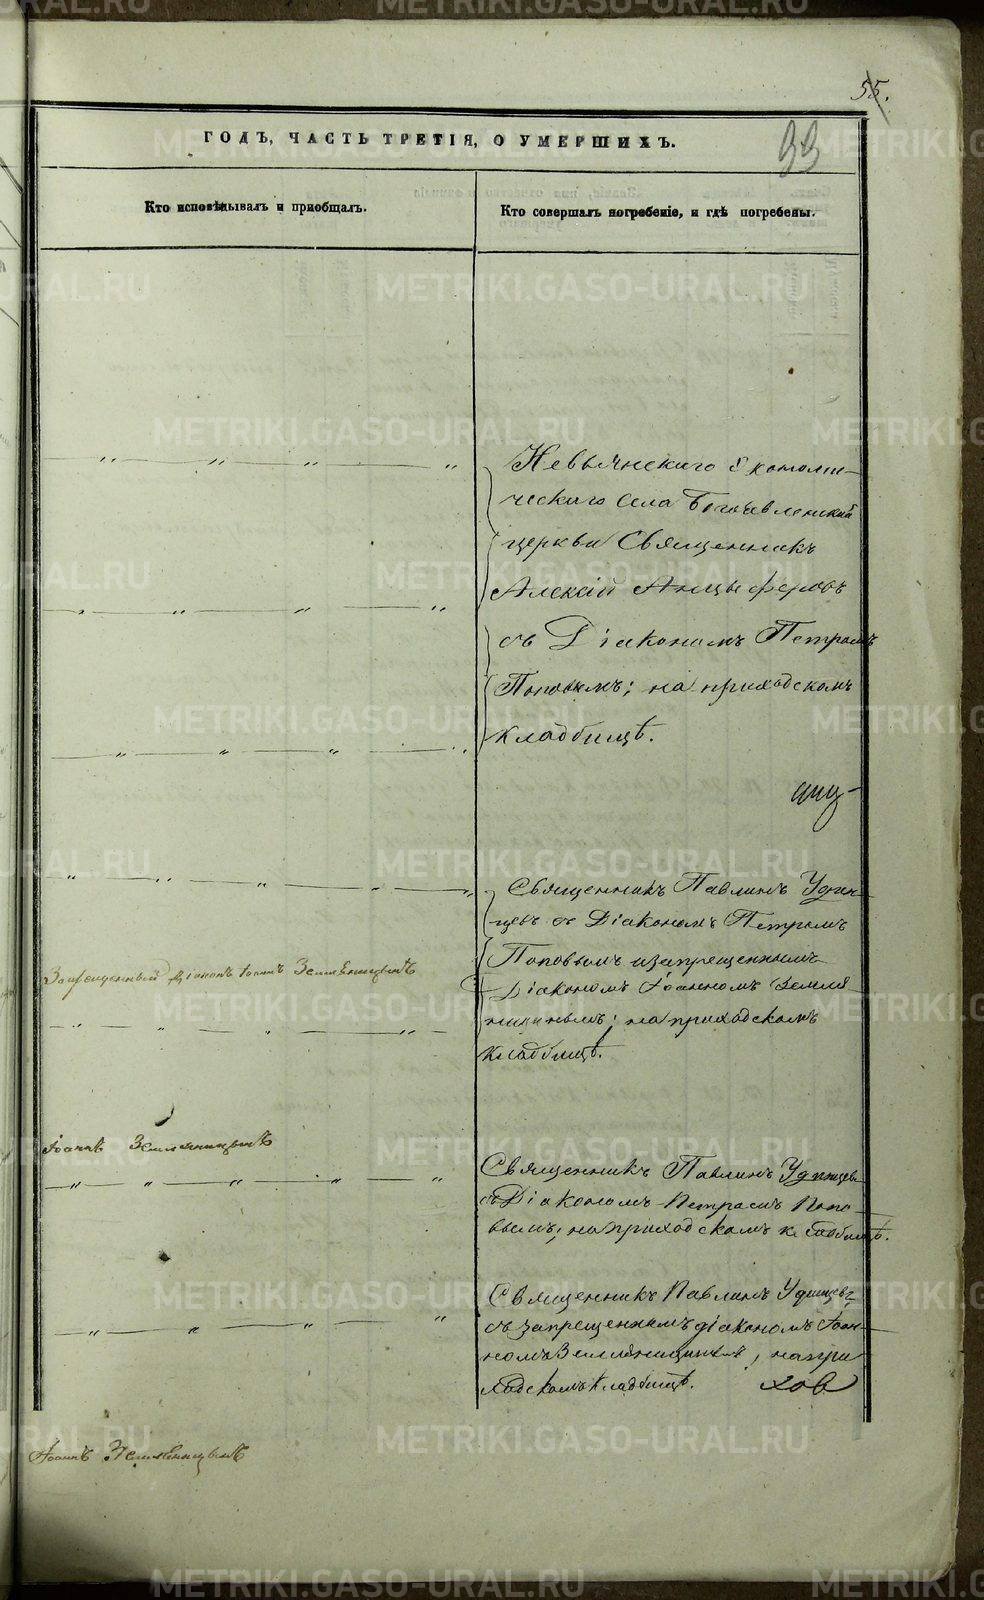 55.
93
ГОДЪ, ЧАСТЬ ТРЕТІЯ, О УМЕРШИХЪ.
Кто исповѣдывалъ и пріобщалъ.
Кто совершалъ погребеніе, и гдѣ погребены.
Невьянскаго Єкономи-
ческаго села Богоявленской
церкви Священникъ
Алексій Анцыферовъ
съ Діакономъ Петромъ
Поповымъ; на приходскомъ
кладбищѣ.
Священникъ Павлинъ Удин-
цевъ съ Діакономъ Петромъ
Поповымъ и запрещеннымъ
Запрещенный Діаконъ Іоаннъ Земляницынъ
Діакономъ Іоанномъ Земля
ницынымъ; на приходскомъ
кладбищѣ.
Іоаннъ Земляницынъ
Священникъ Павлинъ Удинцевъ
съ Діакономъ Петромъ Попо-
вымъ; на приходскомъ кладбищѣ.
Священникъ Павлинъ Удинцевъ
съ запрещеннымъ діакономъ Іоан-
номъ Земляницынымъ, на при
ходскомъ кладбищѣ.
Іоаннъ Земляницынъ
METRIKI.GASO-URAL.RU